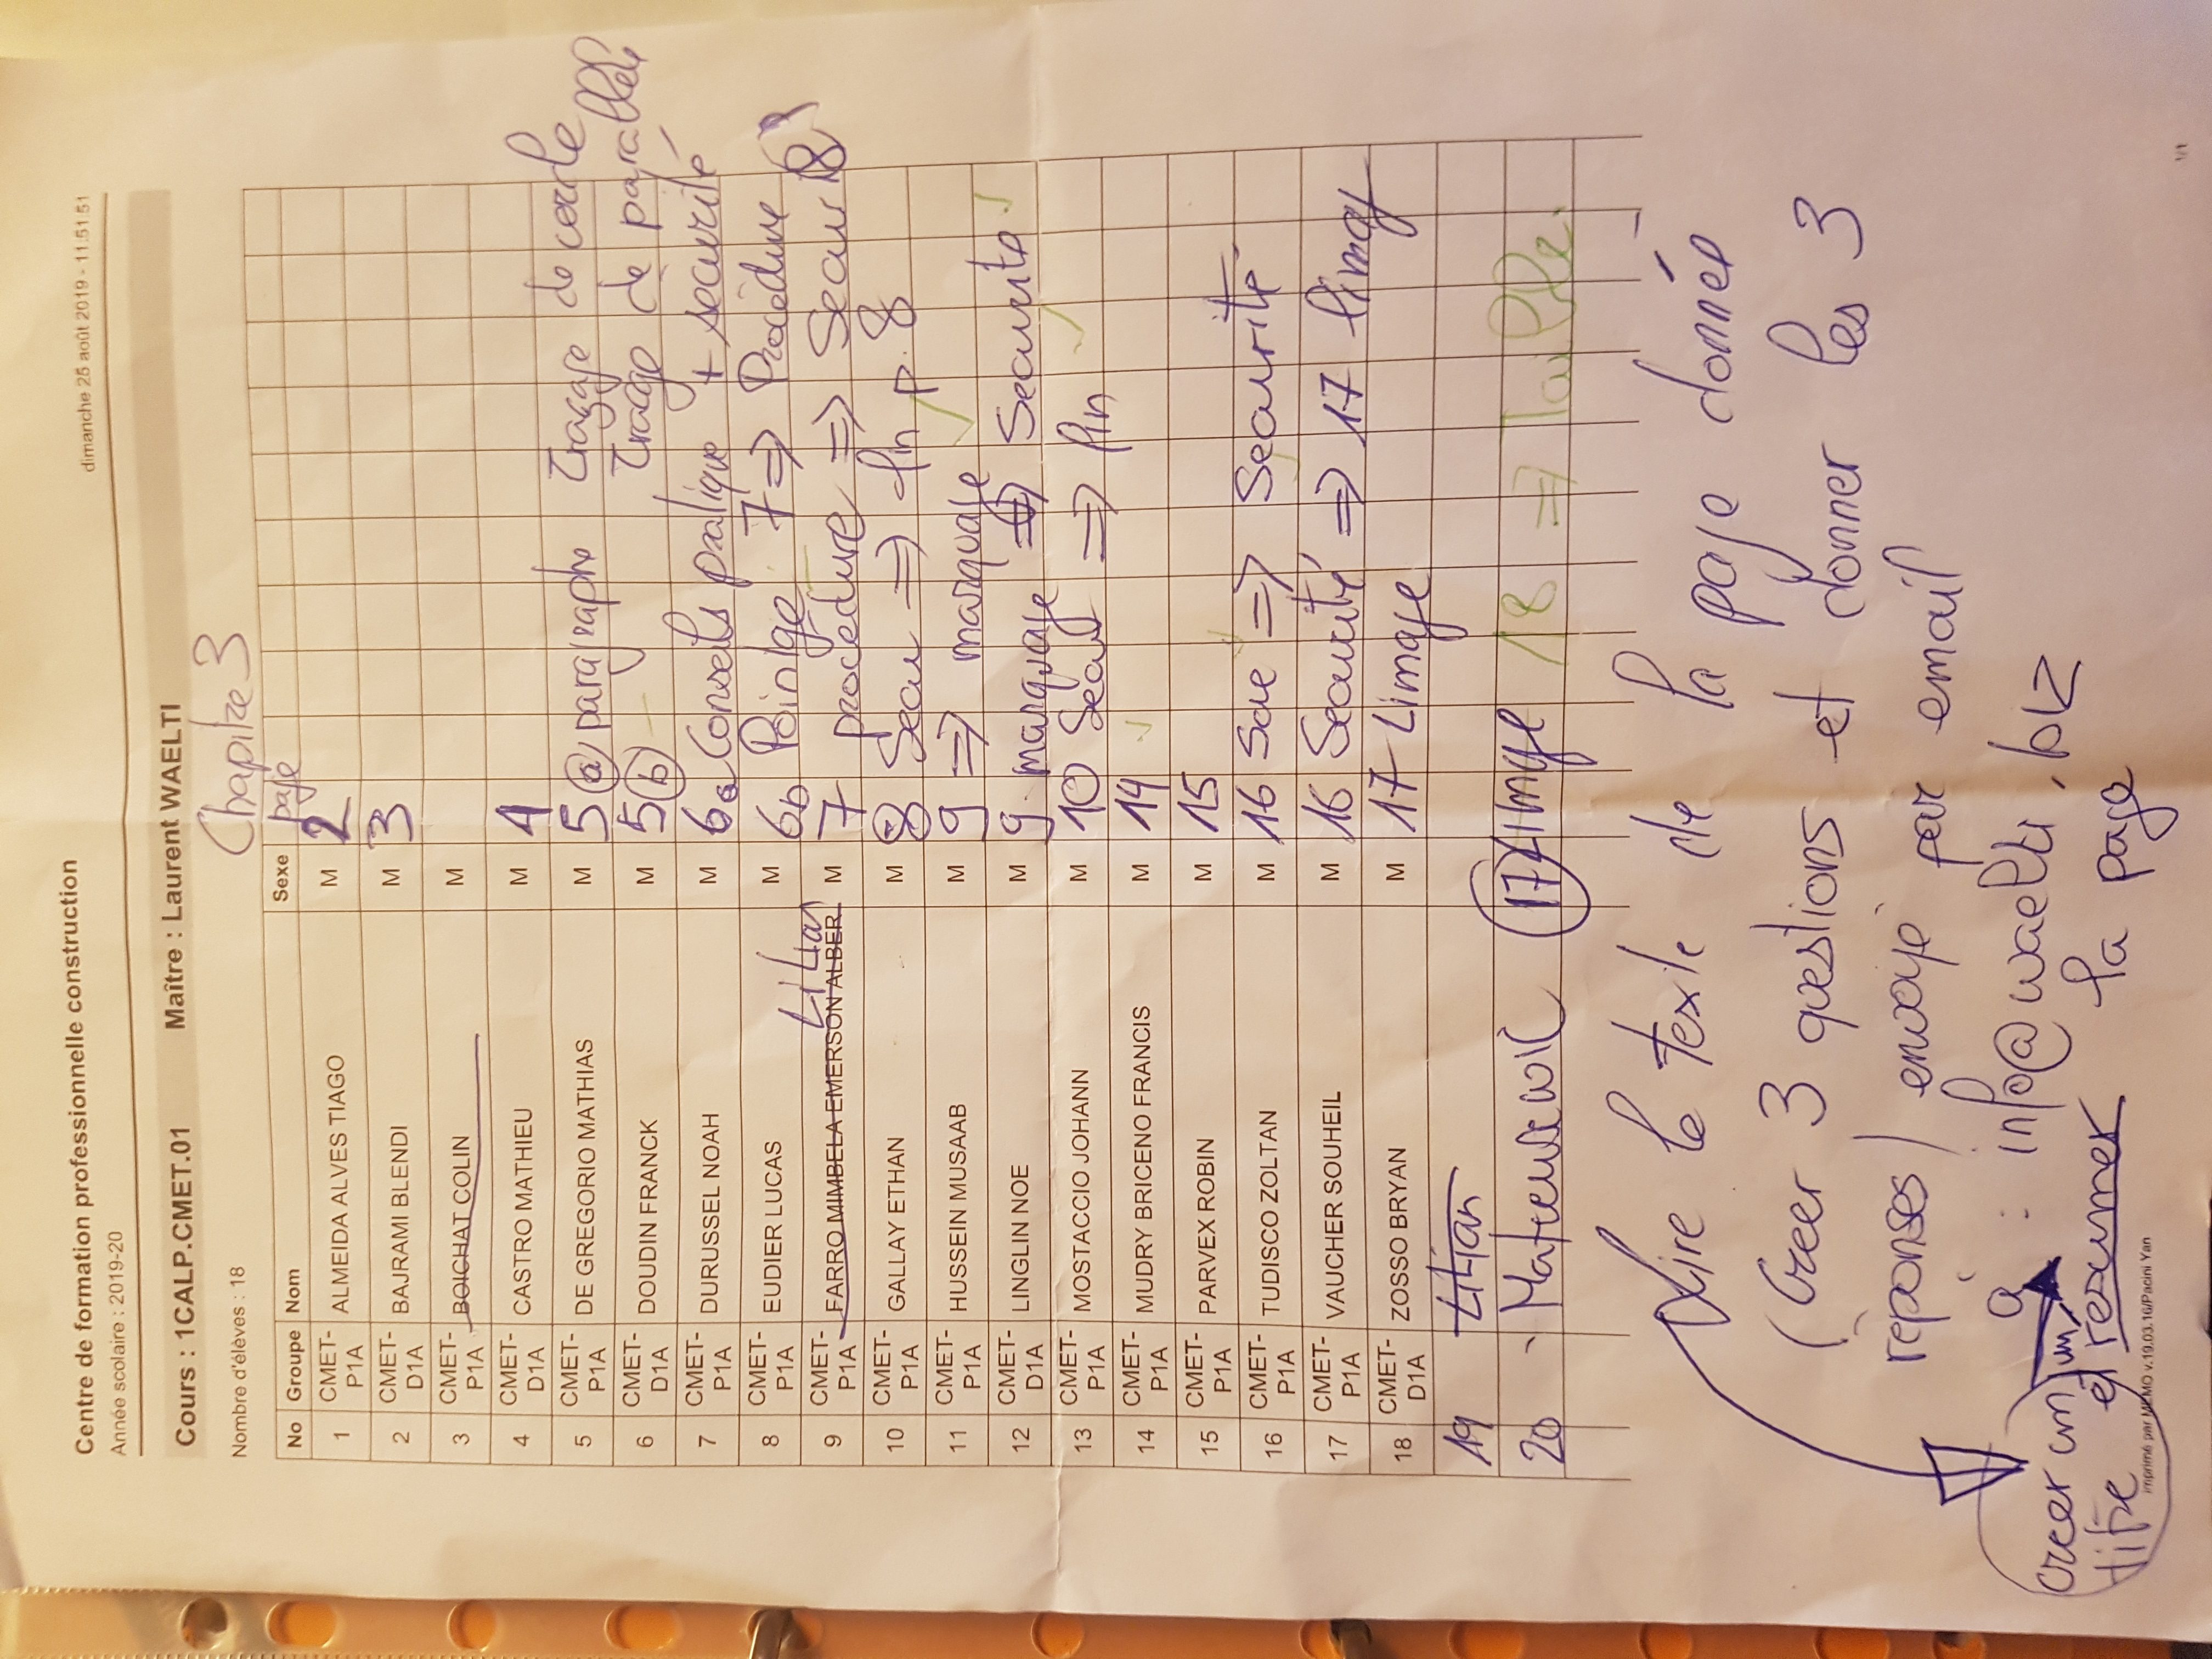 Centre de formation professionnelle construction
Année scolaire : 2019-20
dimanche 25 août 2019 - 11:51:51
Cours : 1CALP.CMET.01 Maître : Laurent WAELTI
Nombre d'élèves : 18
Chapitre 3
No Groupe Nom Sexe page
1 CMET-P1A ALMEIDA ALVES TIAGO M 2
2 CMET-D1A BAJRAMI BLENDI M 3
3 CMET-P1A BOICHAT COLIN M
4 CMET-D1A CASTRO MATHIEU M 4
5 CMET-P1A DE GREGORIO MATHIAS M 5 a paragraphe traçage de cercle
6 CMET-D1A DOUDIN FRANCK M 5 b traçage de parallele
7 CMET-P1A DURUSSEL NOAH M 6a Conseils pratique + securité
8 CMET-P1A EUDIER LUCAS M 6b Pointage 7 => Procedure
9 CMET-P1A FARRO MIMBELA EMERSON ALBER LiLian M 7 procedure => Secur 8
10 CMET-P1A GALLAY ETHAN M 8 Secu => fin p. 8
11 CMET-P1A HUSSEIN MUSAAB M 9 => marquage
12 CMET-D1A LINGLIN NOE M 9 marquage => Securite
13 CMET-P1A MOSTACCIO JOHANN M 10 Secur => fin
14 CMET-P1A MUDRY BRICENO FRANCIS M 14
15 CMET-P1A PARVEX ROBIN M 15
16 CMET-P1A TUDISCO ZOLTAN M 16 Scie => Securité
17 CMET-P1A VAUCHER SOUHEIL M 16 Securité => 17 limage
18 CMET-D1A ZOSSO BRYAN M 17 Limage
19 Lilian
20 17 Limage 18 => Taille
Lire le texte de la page donnée
Creer 3 questions et donner les 3
reponses / envoie par email
a : info@waelti.biz
creer un titre et resumer la page
imprimé par MEMO v.19.03.16/Pacini Yan
1/1